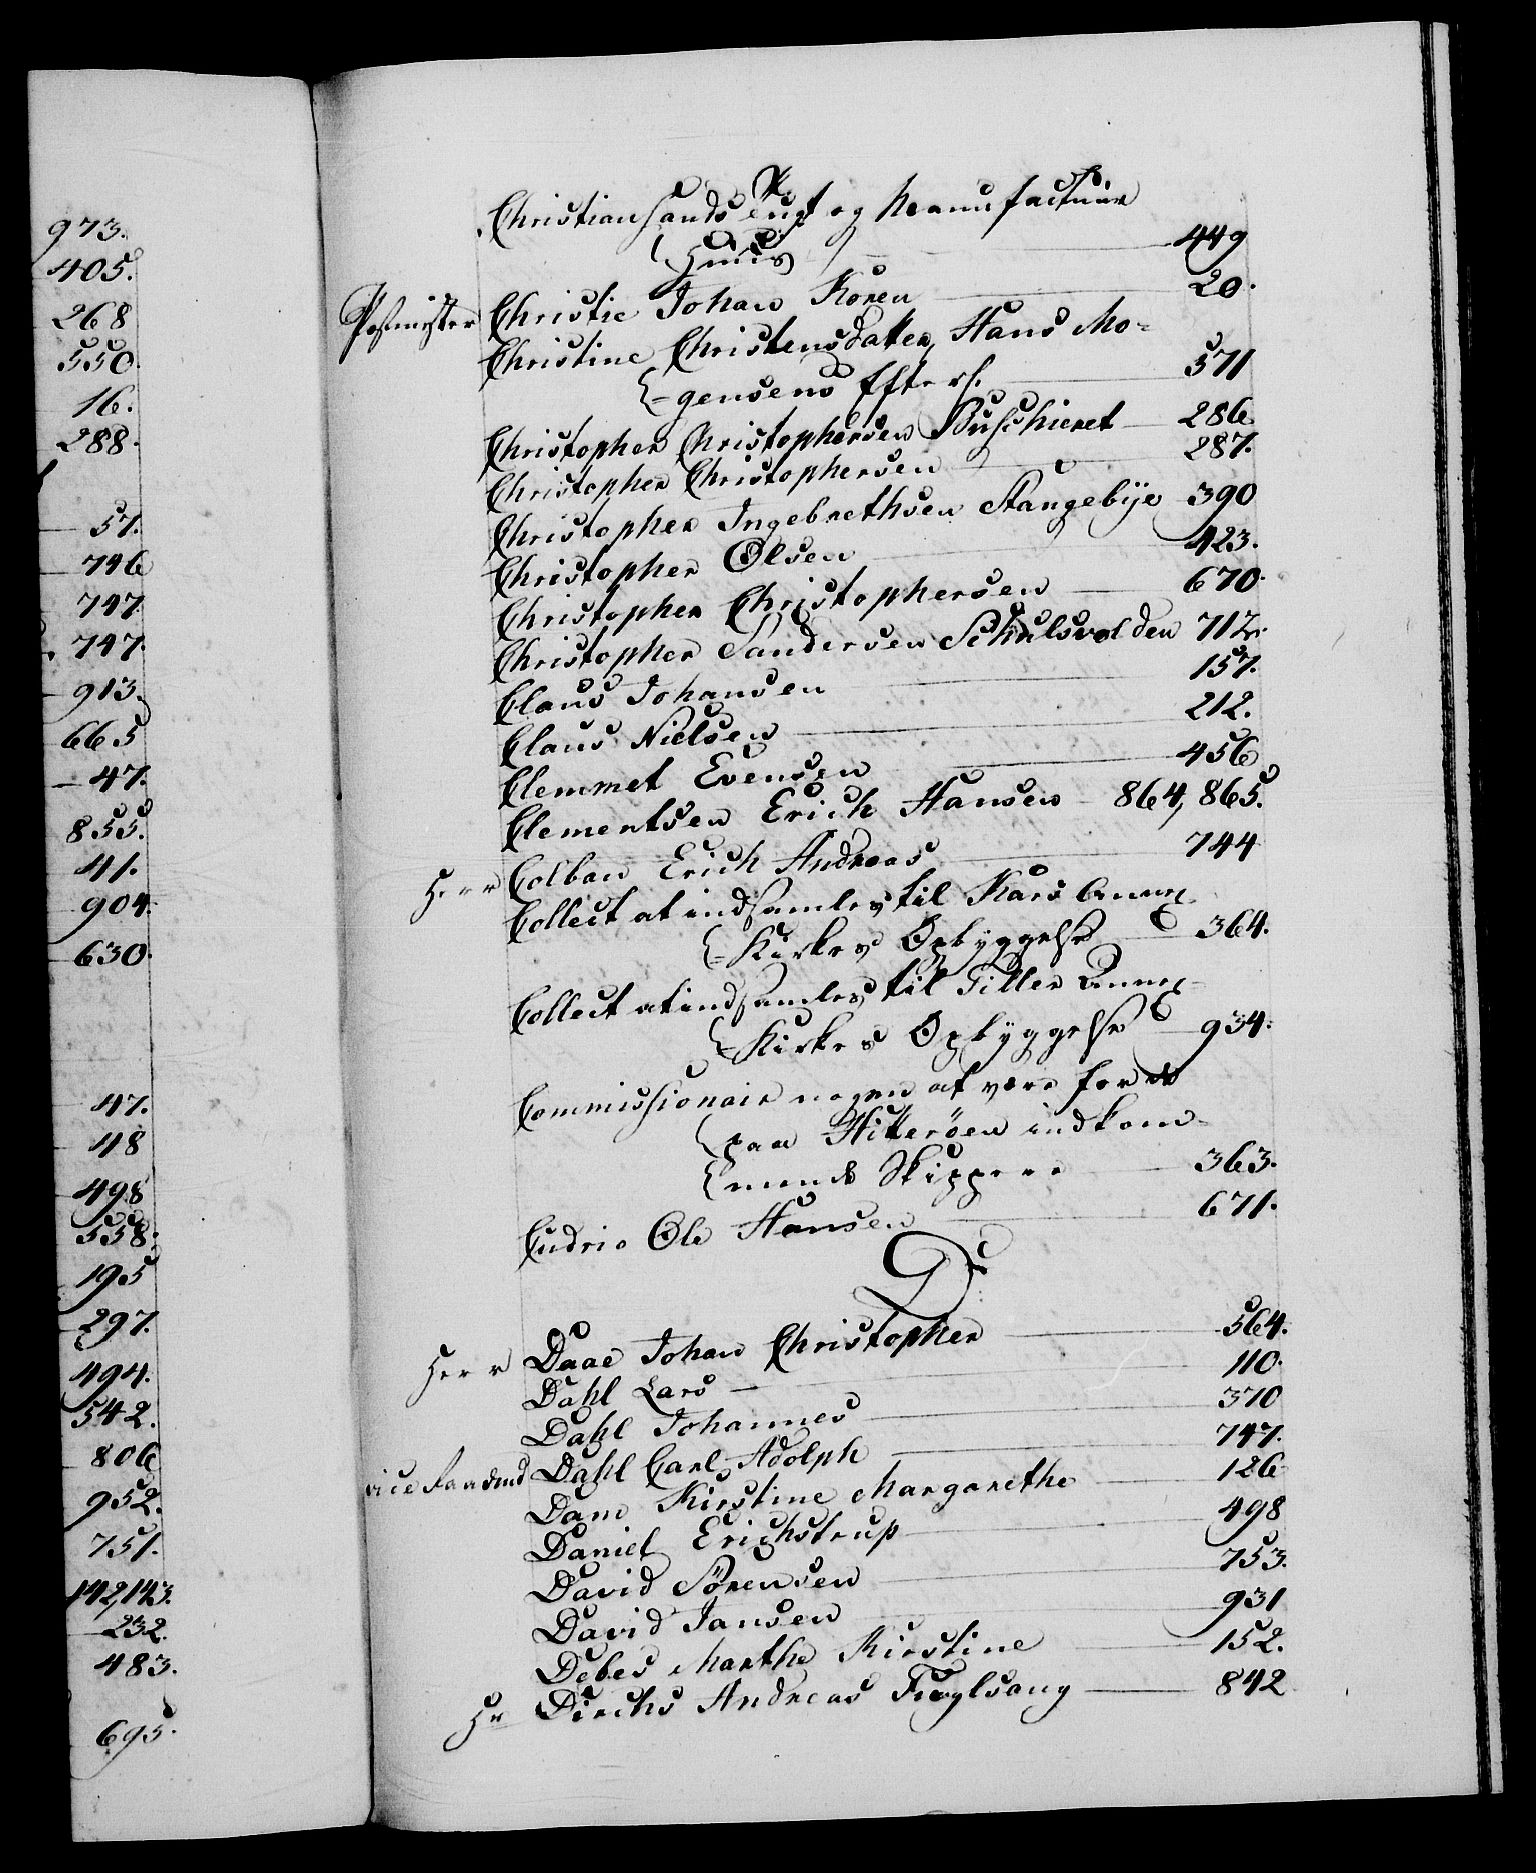 973.
405.
268
550.
16.
288.
57.
746
747
747.
913.
665
47.
855.
41.
904.
630.
47.
48
498
558.
195
297.
494.
542.
806
952.
751.
142,143.
232.
483.
695.
Christiansands Tugt og Manufactuur
Huus 449
Postmester Christie Johan Koren 20.
Christine Christensdatter, Hans Mo-
gensens Efterl. 571
Christopher Christophersen Buschieret 286
Christopher Christophersen 287.
Christopher Ingebrethsen Stangebÿe 390
Christopher Olsen 423.
Christopher Christophersen 670.
Christopher Sandersen Schulsvolden 712.
Claus Johansen 157.
Claus Nielsen 212.
Clemmet Evensen 456
Clementsen Erich Hansen 864, 865.
Herr Colban Erich Andreas 744
Collect at indsamles til Kors Annex
Kirkes Opbyggelse 364.
Collect at indsamles til Tiller Annex
Kirkes Opbyggelse 934.
Commissionair nogen at være for de
paa Hitterøen indkom-
mende Skippere 363.
Cudrio Ole Hansen 671.
D.
Herr Daae Johan Christopher 564.
Dahl Lars 110.
Dahl Johannes 370
vice Raadmd Dahl Carl Adolph 747.
Dam Kirstine Margarethe 126
Daniel Erichstrup 498
David Sörensen 753.
David Jansen 931
Debes Marthe Kirstine 152.
Hr Dirchs Andreas Fuglsang 842